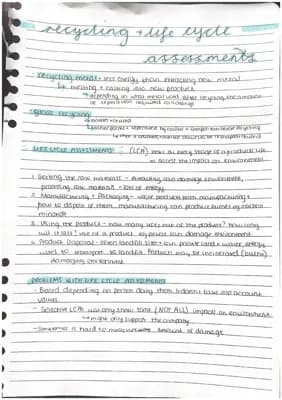 recycling + life cycle
assessments
recycling metal → less energy than extracting new metal
↳ melting + casting into new product
↳ depending on what metal used after recycling the amount
of separation required to change
glass recycling
↳ melted + crushed
life cycle assessments: (LCA) look at every stage of a products life
to assess the impact on environment
1. Getting the raw material - extracting can damage environment,
processing raw material = lots of energy
2. Manufacturing + Packaging - waste products from manufacturing +
how to dispose of them. manufacturing can produce fumes eg carbon
monoxide
3. Using the product - how many uses out of the product? how long
will it last? use of a product eg petrol can damage environment
4. Product Disposal - often landfill sites = can pollute land + water, energy
used to transport to landfill. Products may be incinerated (burns)
damaging environment
problems with life cycle assessments
- Biased depending on person doing them & doesn't take into account
values
- Selective LCAs will only show some (NOT ALL) impacts on environment
↳ might only support the company
- Sometimes is hard to measure amount of damage